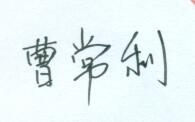 曹常利